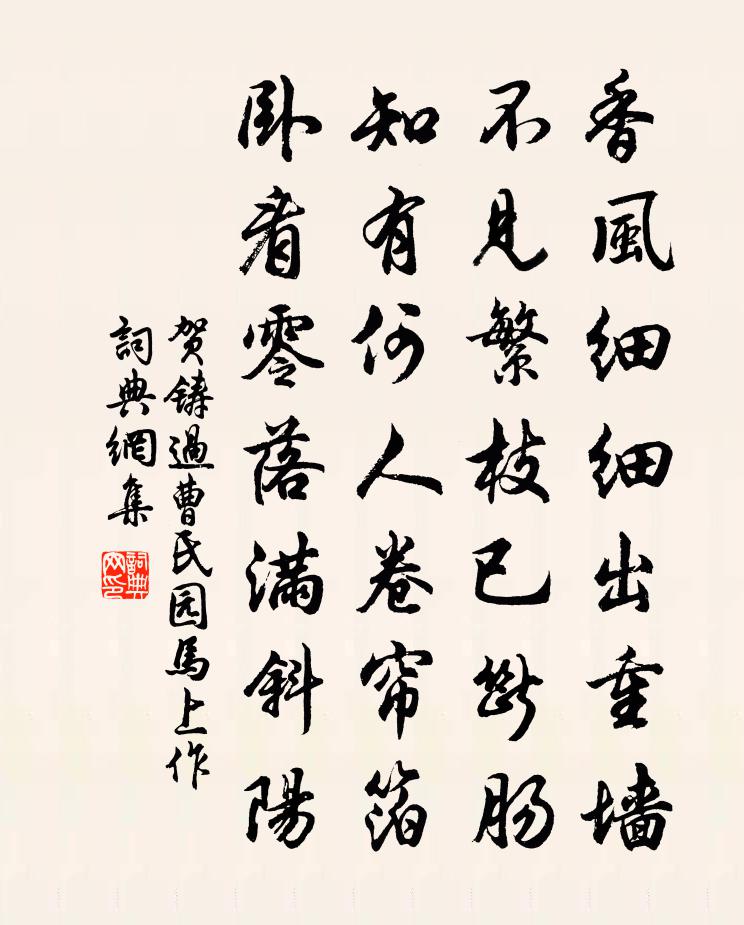 香風細細出重墙
不見繁枝已斷肠
知有何人卷帘箔
卧看零落滿斜陽
贺鑄過曹氏园馬上作
詞典網集
詞典网印